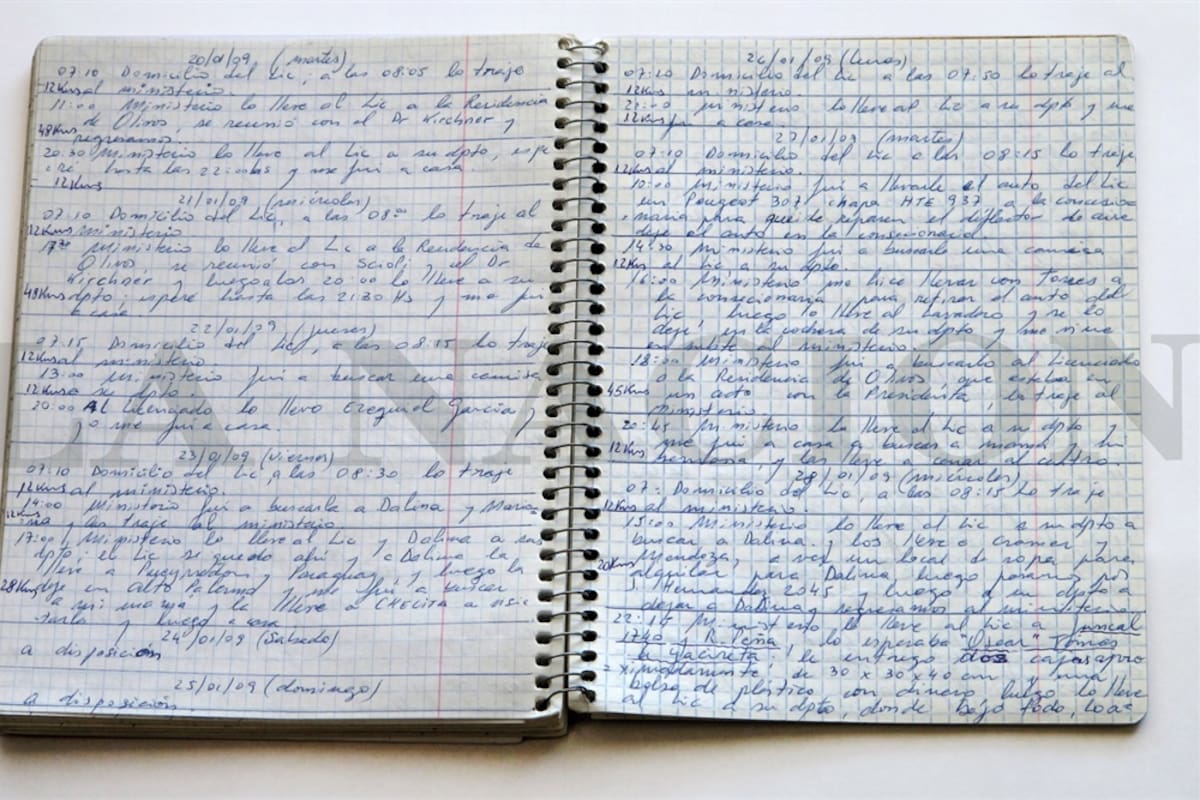 20/01/09 (martes)
07:10 Domicilio del Lic, a las 08:05 lo traje
12Kms al ministerio.
11:00 Ministerio lo lleve al Lic a la Residencia
de Olivos, se reunió con el Dr Kirchner y
48Kms regresamos.
20:30 Ministerio lo lleve al Lic a su dpto, espe
ré hasta las 22:00hs y me fui a casa
12Kms
21/01/09 (miércoles)
07:10 Domicilio del Lic, a las 08:00 lo traje al
12Kms ministerio
17:20 Ministerio lo lleve al Lic a la Residencia de
Olivos se reunió con Scioli y el Dr
Kirchner y luego a las 20:00 lo lleve a su
48Kms dpto; esperé hasta las 21:30 Hs y me fui
a casa
22/01/09 (jueves)
07:15 Domicilio del Lic, a las 08:15 lo traje
12Kms al ministerio
13:00 Ministerio fui a buscar una camisa
12Kms a su dpto.
20:00 Al Licenciado lo llevo Ezequiel García y
yo me fui a casa.
23/01/09 (viernes)
07:10 Domicilio del Lic, a las 08:30 lo traje
12Kms al ministerio.
14:00 Ministerio fui a buscarla a Dalina y Maria
12Kms y las traje al ministerio
17:00 Ministerio lo lleve al Lic y Dalina a su
dpto; el Lic se quedo ahí y a Dalina la
lleve a Pueyrredon y Paraguay y luego la
28Kms deje en Alto Palermo y me fui a buscar
a mi mama y la lleve a CHELITA a visi
tarla y luego a casa
24/01/09 (Sabado)
a disposición
25/01/09 (domingo)
a disposición
26/01/09 (lunes)
07:20 Domicilio del Lic a las 07:50 lo traje al
12Kms ministerio.
22:00 Ministerio lo lleve al Lic a su dpto y me
12Kms fui a casa
27/01/09 (martes)
07:10 Domicilio del Lic a las 08:15 lo traje
12Kms al ministerio.
10:00 Ministerio fui a llevarle el auto del Lic
un Peugeot 307 chapa HTE 937 a la concesio
naria para que le reparen el deflector de aire
deje el auto en la consecionaria
14:30 Ministerio fui a buscarle una camisa
12Kms al Lic a su dpto.
16:00 Ministerio me hice llevar con Torres a
la consecionaria para retirar el auto del
Lic, luego lo lleve al Lavadero y se lo
deje en la cochera de su dpto y me vine
en subte al ministerio.
18:00 Ministerio fui a buscarlo al Licenciado
a la Residencia de Olivos, que estaba en
45Kms un acto con la Presidenta, lo traje al
ministerio
20:45 Ministerio lo lleve al Lic a su dpto y
12Kms me fui a casa a buscar a mamá y mi
hermana, y las lleve a cenar al centro.
28/01/09 (miércoles)
07: Domicilio del Lic, a las 08:15 lo traje
12Kms al ministerio.
15:00 Ministerio lo lleve al Lic a su dpto a
buscar a Dalina y los lleve a Cramer y
20Kms Mendoza, a ver un local de ropa para
alquilar para Dalina, luego pasamos por
Hernandez 2045 y luego a su dpto a
dejar a Dalina y regresamos al ministerio
22:15 Ministerio lo lleve al Lic a Juncal
1740 y R. Peña, lo esperaba "Oscar" Tomas
de Yacireta, le entrego dos cajas apro
ximadamente de 30 x 30 x 40 cm y una
bolsa de plástico con dinero, luego lo lleve
al Lic a su dpto, donde bajó todo, lo a-
LA NACION